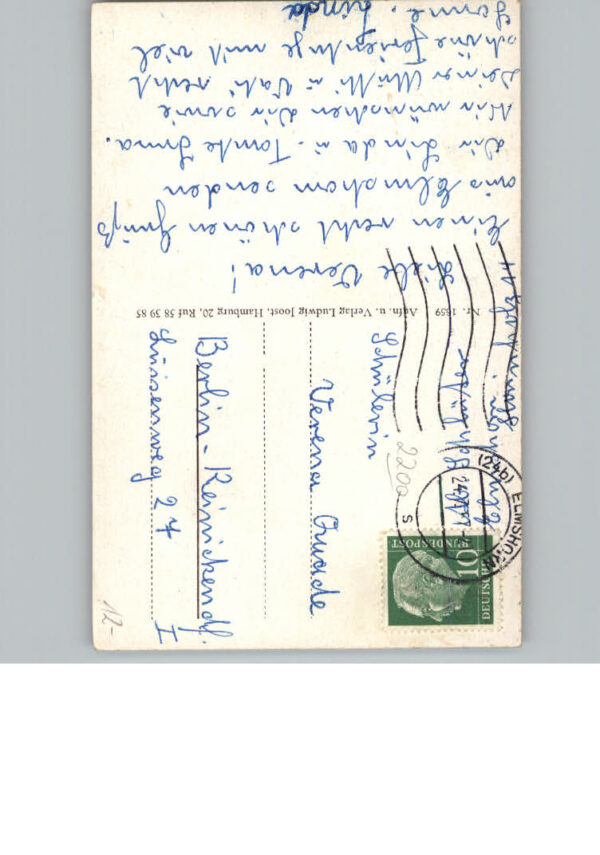 Liebe Verena!
Einen recht schönen Gruß
aus Elmshorn senden
Dir Linda u. Tante Irma.
Wir wünschen Dir sowie
Deiner Mutti u. Vati recht
schöne Ferientage mit viel
Sonne. Linda
Nr. 1659 Aufn. u. Verlag Ludwig Joost, Hamburg 20, Ruf 58 39 85
Schülerin
Verena
Berlin-Reinickendf.
I
27
2200
(24b) ELMSHORN
24.7.
s
DEUTSCHE
BUNDESPOST
10
12-